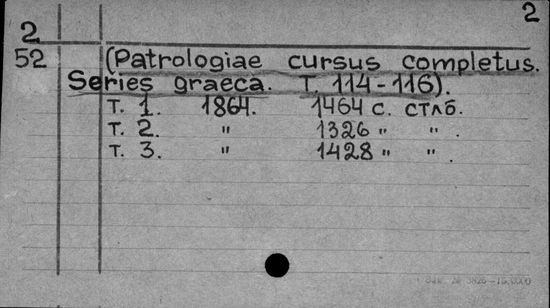 2
2
52 (Patrologiae cursus completus.
Series graeca. T. 114-116).
т. 1. 1864. 1464 с. стлб.
т. 2. " 1326 " " .
т. 3. " 1428 " " .